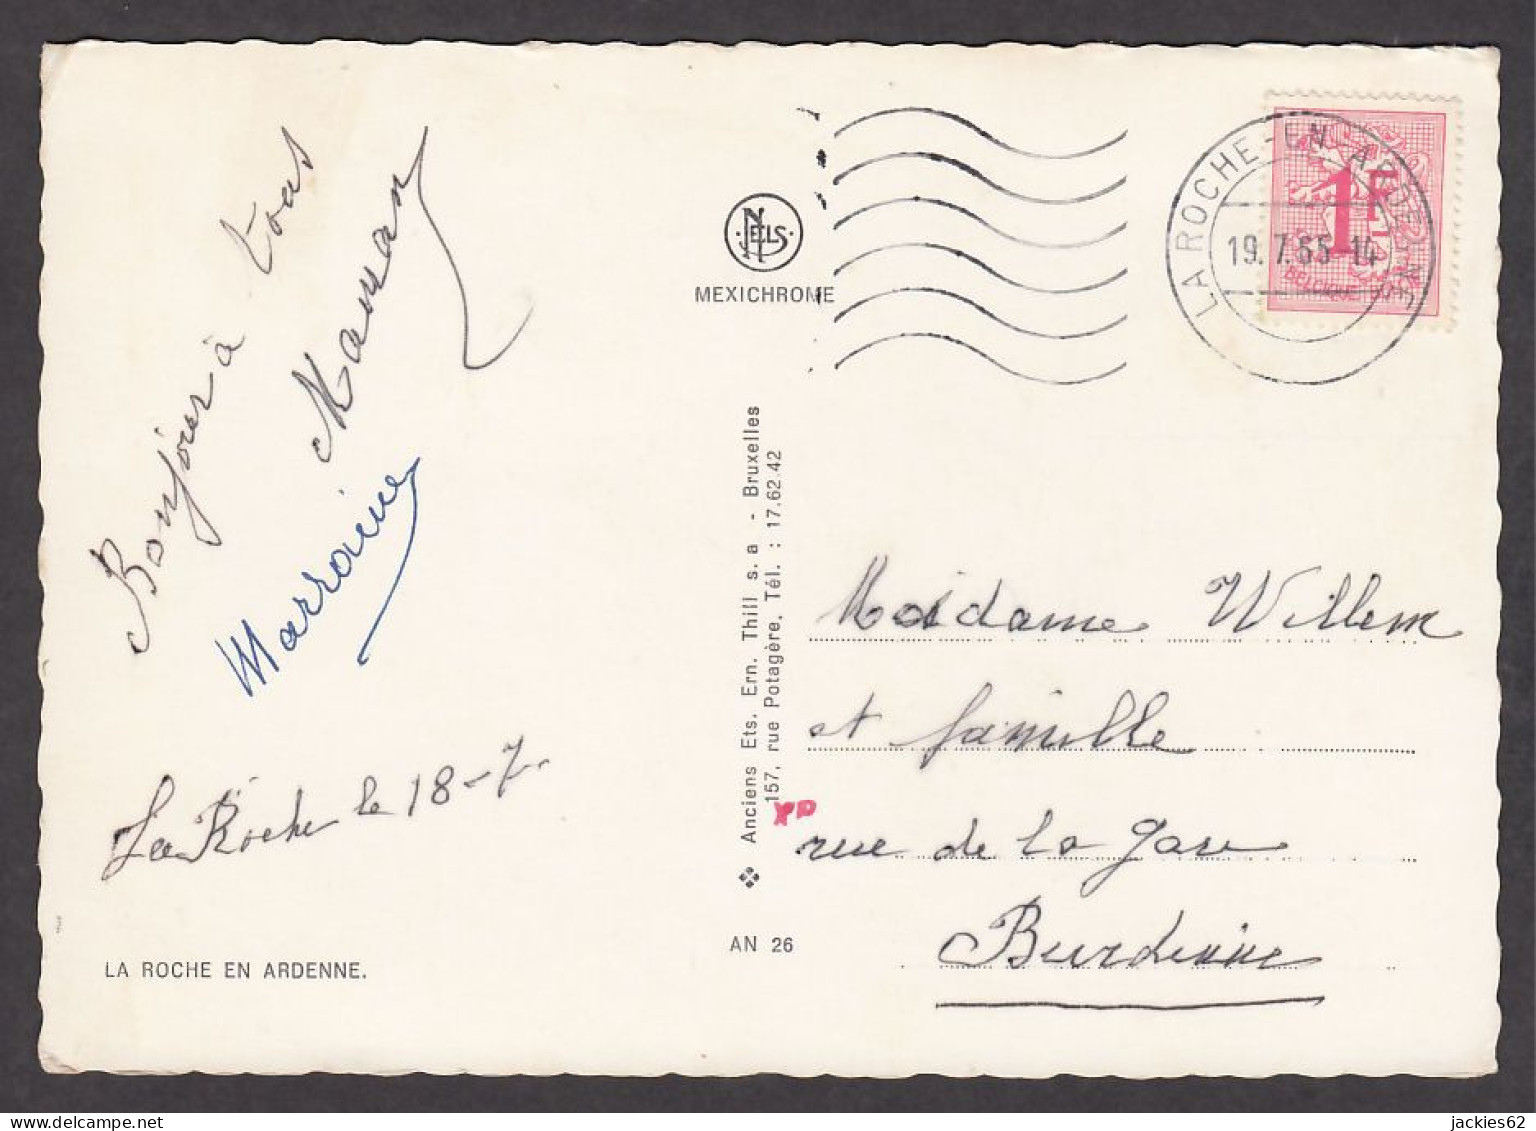 Bonjour à tous
Maman
Marraine
La Roche le 18-7-
LA ROCHE EN ARDENNE.
NELS
MEXICHROME
Anciens Ets. Ern. Thill s.a - Bruxelles
157, rue Potagère, Tél. : 17.62.42
AN 26
LA ROCHE-EN ARDENNE
19.7.65-14
1F
BELGIQUE
Madame Willem
et famille
rue de la gare
Burdinne
jackies62